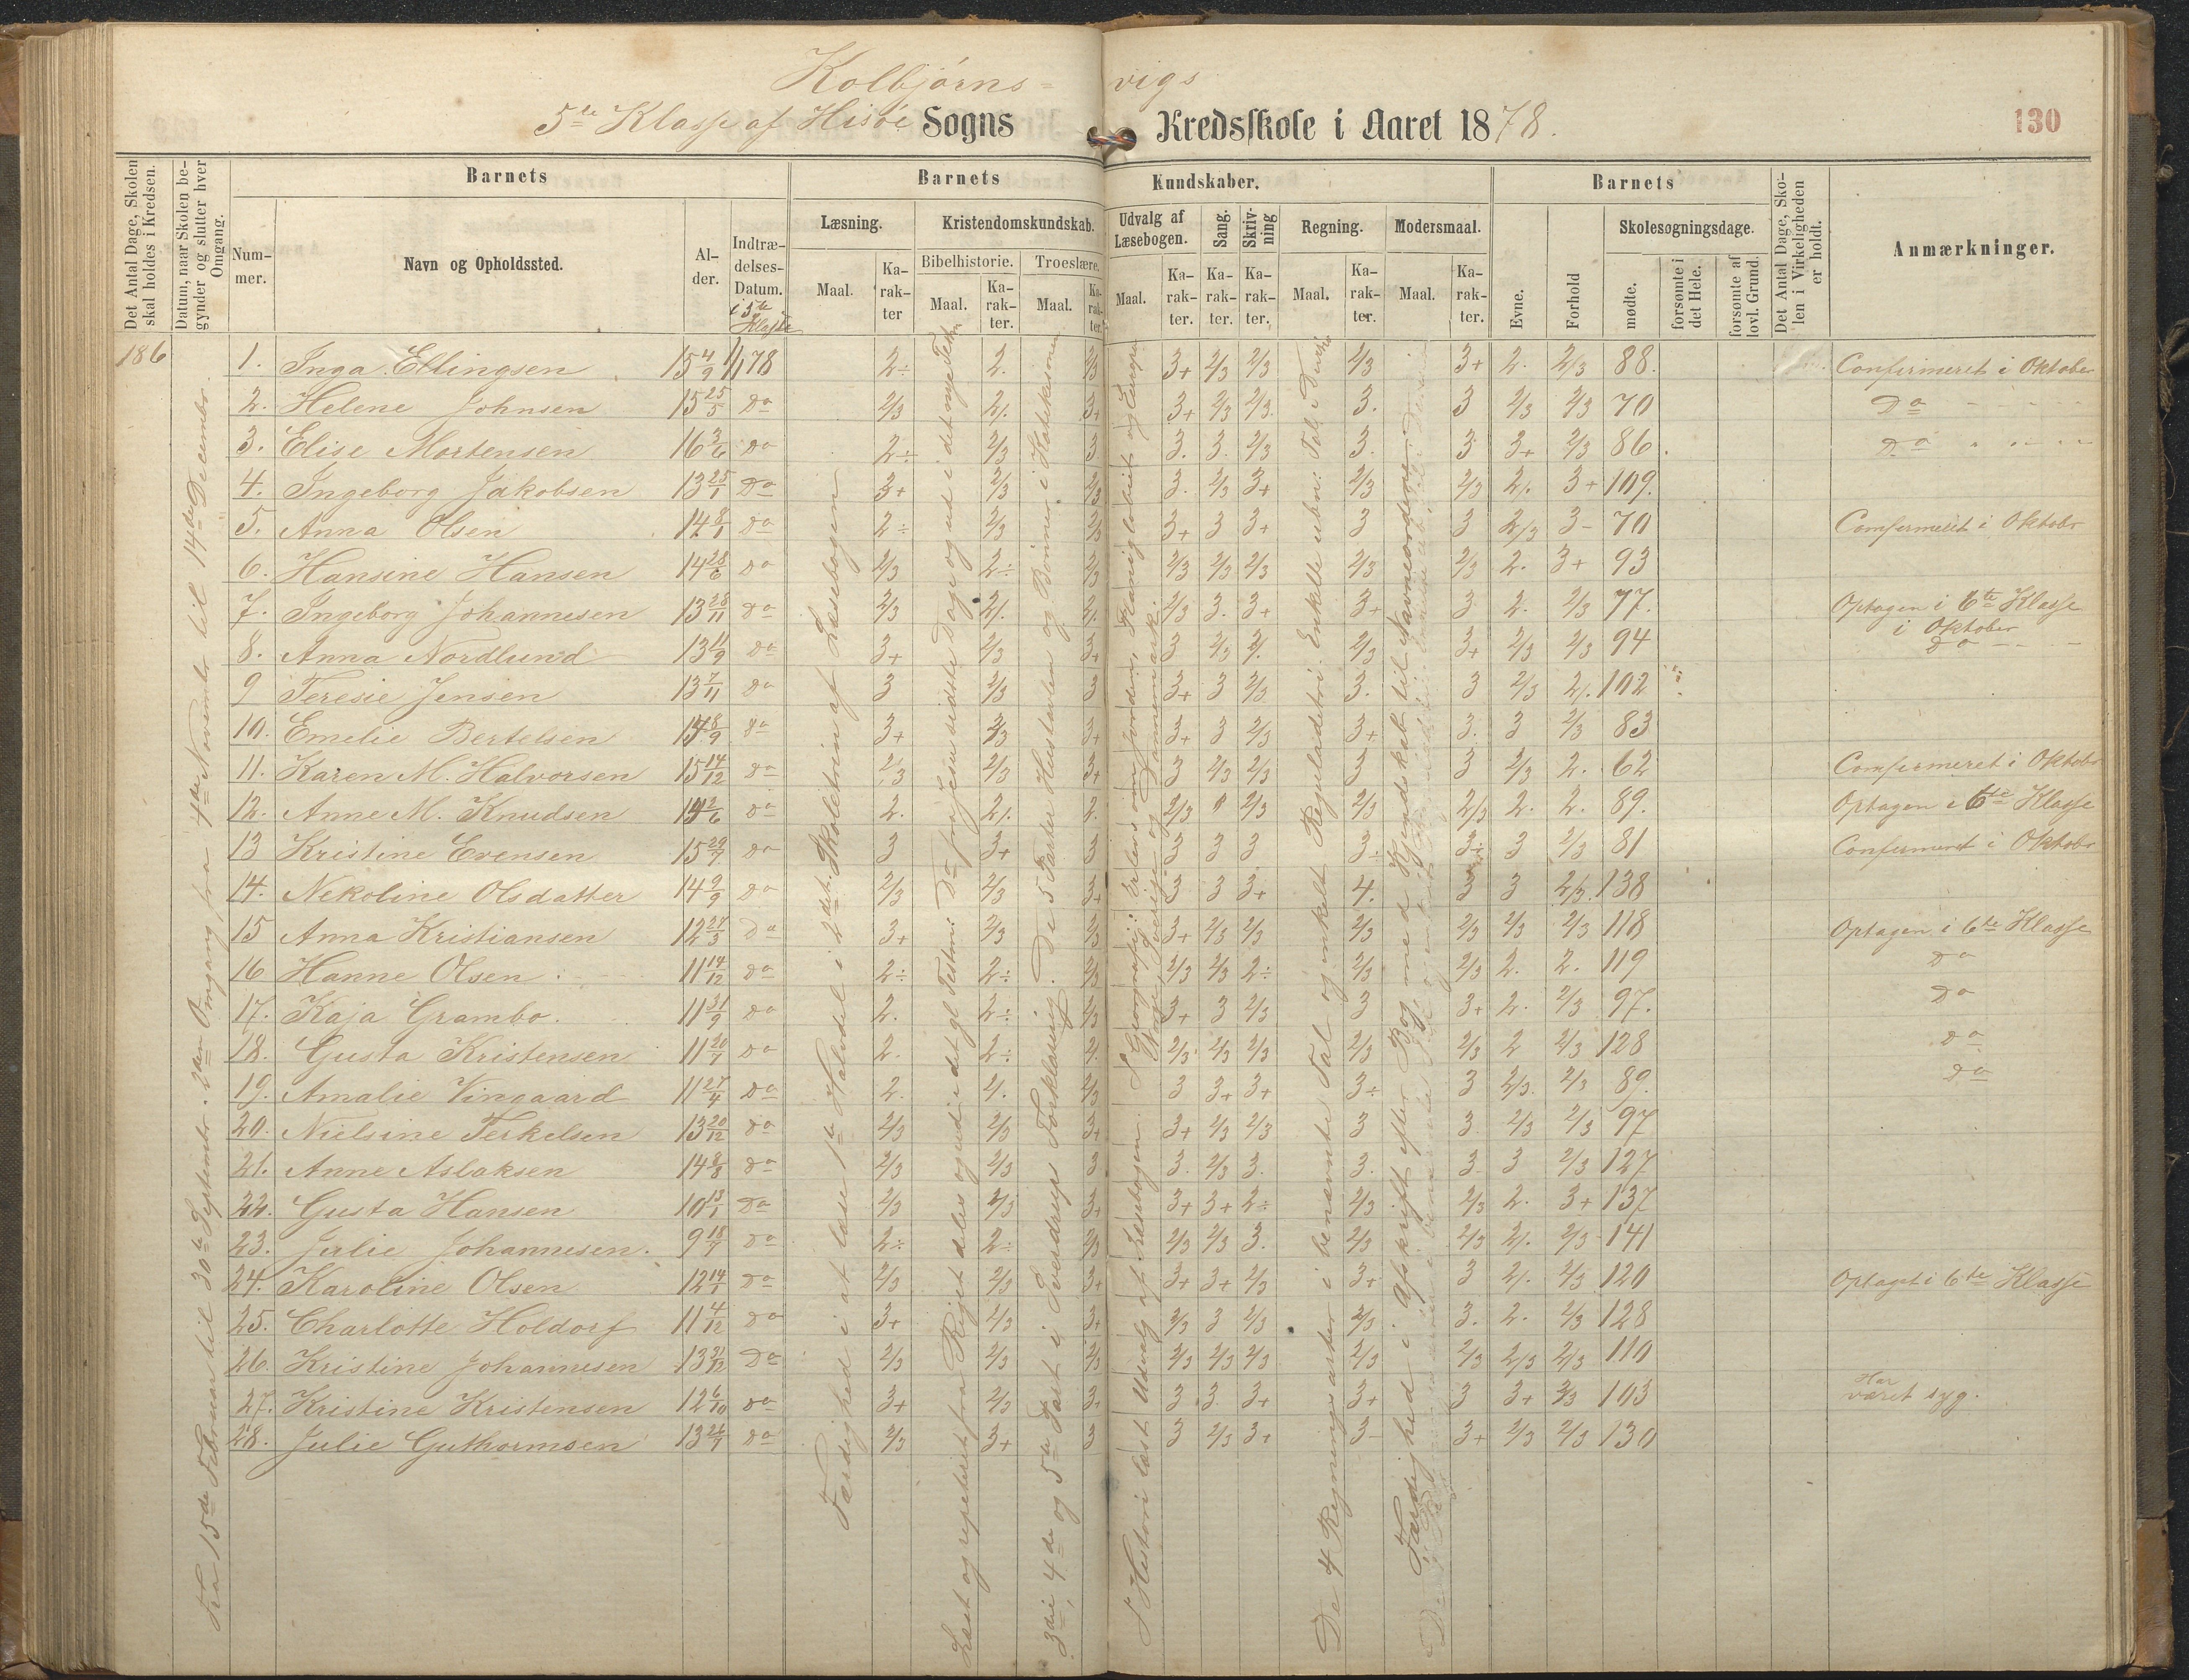 Kolbjørns= vigs
5te Klasse af Hisøe Sogns Kredsskole i Aaret 1878.
130
Det Antal Dage, Skolen skal holdes i Kredsen.
Datum, naar Skolen begynder og slutter hver Omgang.
Barnets
Barnets Kundskaber.
Barnets
Det Antal Dage, Skolen i Virkeligheden er holdt.
Anmærkninger.
Nummer.
Navn og Opholdssted.
Alder.
Indtrædelses-Datum. i 5te Klasse
Læsning.
Kristendomskundskab.
Udvalg af Læsebogen.
Sang.
Skrivning
Regning.
Modersmaal.
Evne.
Forhold
Skolesøgningsdage.
Bibelhistorie.
Troeslære.
Maal. Karakter
Maal. Karakter.
Maal. Karakter.
Maal. Karakter.
Karakter.
Karakter.
Maal. Karakter.
Maal. Karakter.
mødte.
forsømte i det Hele.
forsømte af lovl. Grund.
186
Fra 15de Februar til 30te Septembr. 2den Omgang fra 4de Novembr til 14de Decembr.
1. Inga Ellingsen 15 4/9 1/1 78 2÷ 2. 2/3 3+ 2/3 2/3 2/3 3+ 2. 2/3 88. Confirmeret i Oktober
2. Helene Johnsen 15 25/5 Do 2/3 2/. 3+ 3+ 2/3 2/3. 3. 3 2/3 2/3 70 Do
3. Elise Mortensen 16 3/6 do 2÷ 2/3 3 3. 3. 2/3 3. 3 3+ 2/3 86. Do
4. Ingeborg Jakobsen 13 25/1 Do 3+ 2/3 2/3 3. 2/3 3+ 2/3 2/3 2/. 3+ 109.
5. Anna Olsen 14 8/1 do 2÷ 2/3 2/3 3+ 3 3+ 3 3 2/3 3- 70 Confirmeret i Oktobr
6. Hansine Hansen 14 28/6 do 2/3 2÷ 2/3 2/3 2/3 2/3 2/3 2/3 2. 3+ 93
7. Ingeborg Johannesen 13 28/11 do 2/3 2/. 2/. 2/3 3. 3+ 3+ 3 2. 2/3 77. Optagen i 6te Klasse i Oktober
8. Anna Nordlund 13 11/9 do 3+ 2/3 3+ 3 2/3 2/. 2/3 3+ 2/3 2/3 94 Do
9 Teresie Jensen 13 7/11 do 3 2/3 3 3+ 3 2/3 3. 3 2/3 2/. 102
10. Emelie Bertelsen 8/9 do 3+ 2/3 3+ 3+ 3 2/3 3+ 3. 3 2/3 83
11. Karen M. Halvorsen 15 14/12 do 2/3 2/3 3+ 3 2/3 2/3 3 3 2/3 2. 62 Confirmeret i Oktobr
12. Anne M. Knudsen 14 2/6 do 2. 2/. 2. 2/3 2/3 2/3 2/3 2. 2. 89. Optagen i 6te Klasse
13 Kristine Evensen 15 29/7 do 3 3+ 3 3 3 3 3÷ 3÷ 3 2/3 81 Confirmeret i Oktobr
14. Nekoline Olsdatter 14 9/9 do 2/3 2/3 3+ 3 3 3+ 4. 3 3 2/3. 138
15 Anna Kristiansen 12 27/3 Do 3+ 2/3 2/3 3+ 2/3 2/3 2/3 2/3 2/3 2/3 118 Optagen i 6te Klasse
16 Hanne Olsen 11 14/12 do 2÷ 2÷ 2/3 2/3 2/3 2÷ 2/3 2/3 2. 2. 119 Do
17. Kaja Grambo. 11 21/9 do 2. 2÷ 2/3 3+ 3 2/3 3 3+ 2. 2/3 97. Do
18. Gusta Kristensen 11 20/7 do 2. 2÷ 2. 2/3 2/3 2/3 2/3 2/3 2 2/3 128 Do
19. Amalie Vingaard 11 27/4 do 2. 2/. 2/3 3 3+ 3+ 3÷ 3 2/3. 2/3 89. Do
20. Nielsine Terkelsen 13 20/12 do 2/3 2/3 3+ 3+ 2/3 2/3 3 3 2/3 2/3 97
21. Anne Aslaksen 14 8/8 do 2/3 2/3 3 3. 2/3 3. 3. 3. 3 2/3 127
22. Gusta Hansen 10 13/1 Do 2/3 2/3 3+ 3+ 3+ 2÷ 2/3 2/3 2. 3+ 137
23. Julie Johannesen. 9 18/7 do 2÷ 2÷ 2/3 2/3 2/3 3. 2/3 2/3 2/. 2/3 141
24. Karoline Olsen 12 14/1 do 2/3 2/3 3+ 3+ 3+ 2/3 3+ 3 2/. 2/3 120 Optaget i 6te Klasse
25. Charlotte Holdorf 11 4/12 do 3+ 2/3 3+ 2/3 3 2/3 2/3 3. 2. 2/3 128
26. Kristine Johannesen 13 31/12 Do 2/3 2/3 2/3 2/3 2/3 2/3 2/3 2/3 2/3 2/3 110
27. Kristine Kristensen 12 6/10 do 3+ 2/3 3+ 3 3. 3+ 3+ 3 3+ 2/3 103 Har været syg.
28. Julie Guthormsen 13 26/7 do 2/3 3+ 3 3 2/3 3+ 3- 3+ 2/3 2/3 130
Færdighed i at læse 1te Halvdel i 2det Skoletrin af Læsebogen
Læst og repeteret fra Riget deles og ud i det gl. Testm: Do fra Jesu sidste Dage og ud i det nye Testm
3die, 4de og 5te Part i Sverdrups Forklaring. De 5 Parter Hustavlen og Bønner i Katekismen
I Historie læst Udvalg af Læsebogen. I Geografi: Orlers om Jorden, Planiglobiet og Europa Norge, Sverige og Dannemark.
De 4 Regningsarter i benævnte Tal og enkelt Reguladetri. Enkelte ubn: Tal i Decim
Færdighed i Afskrift efter Bog med Kjendskab til Navneordener